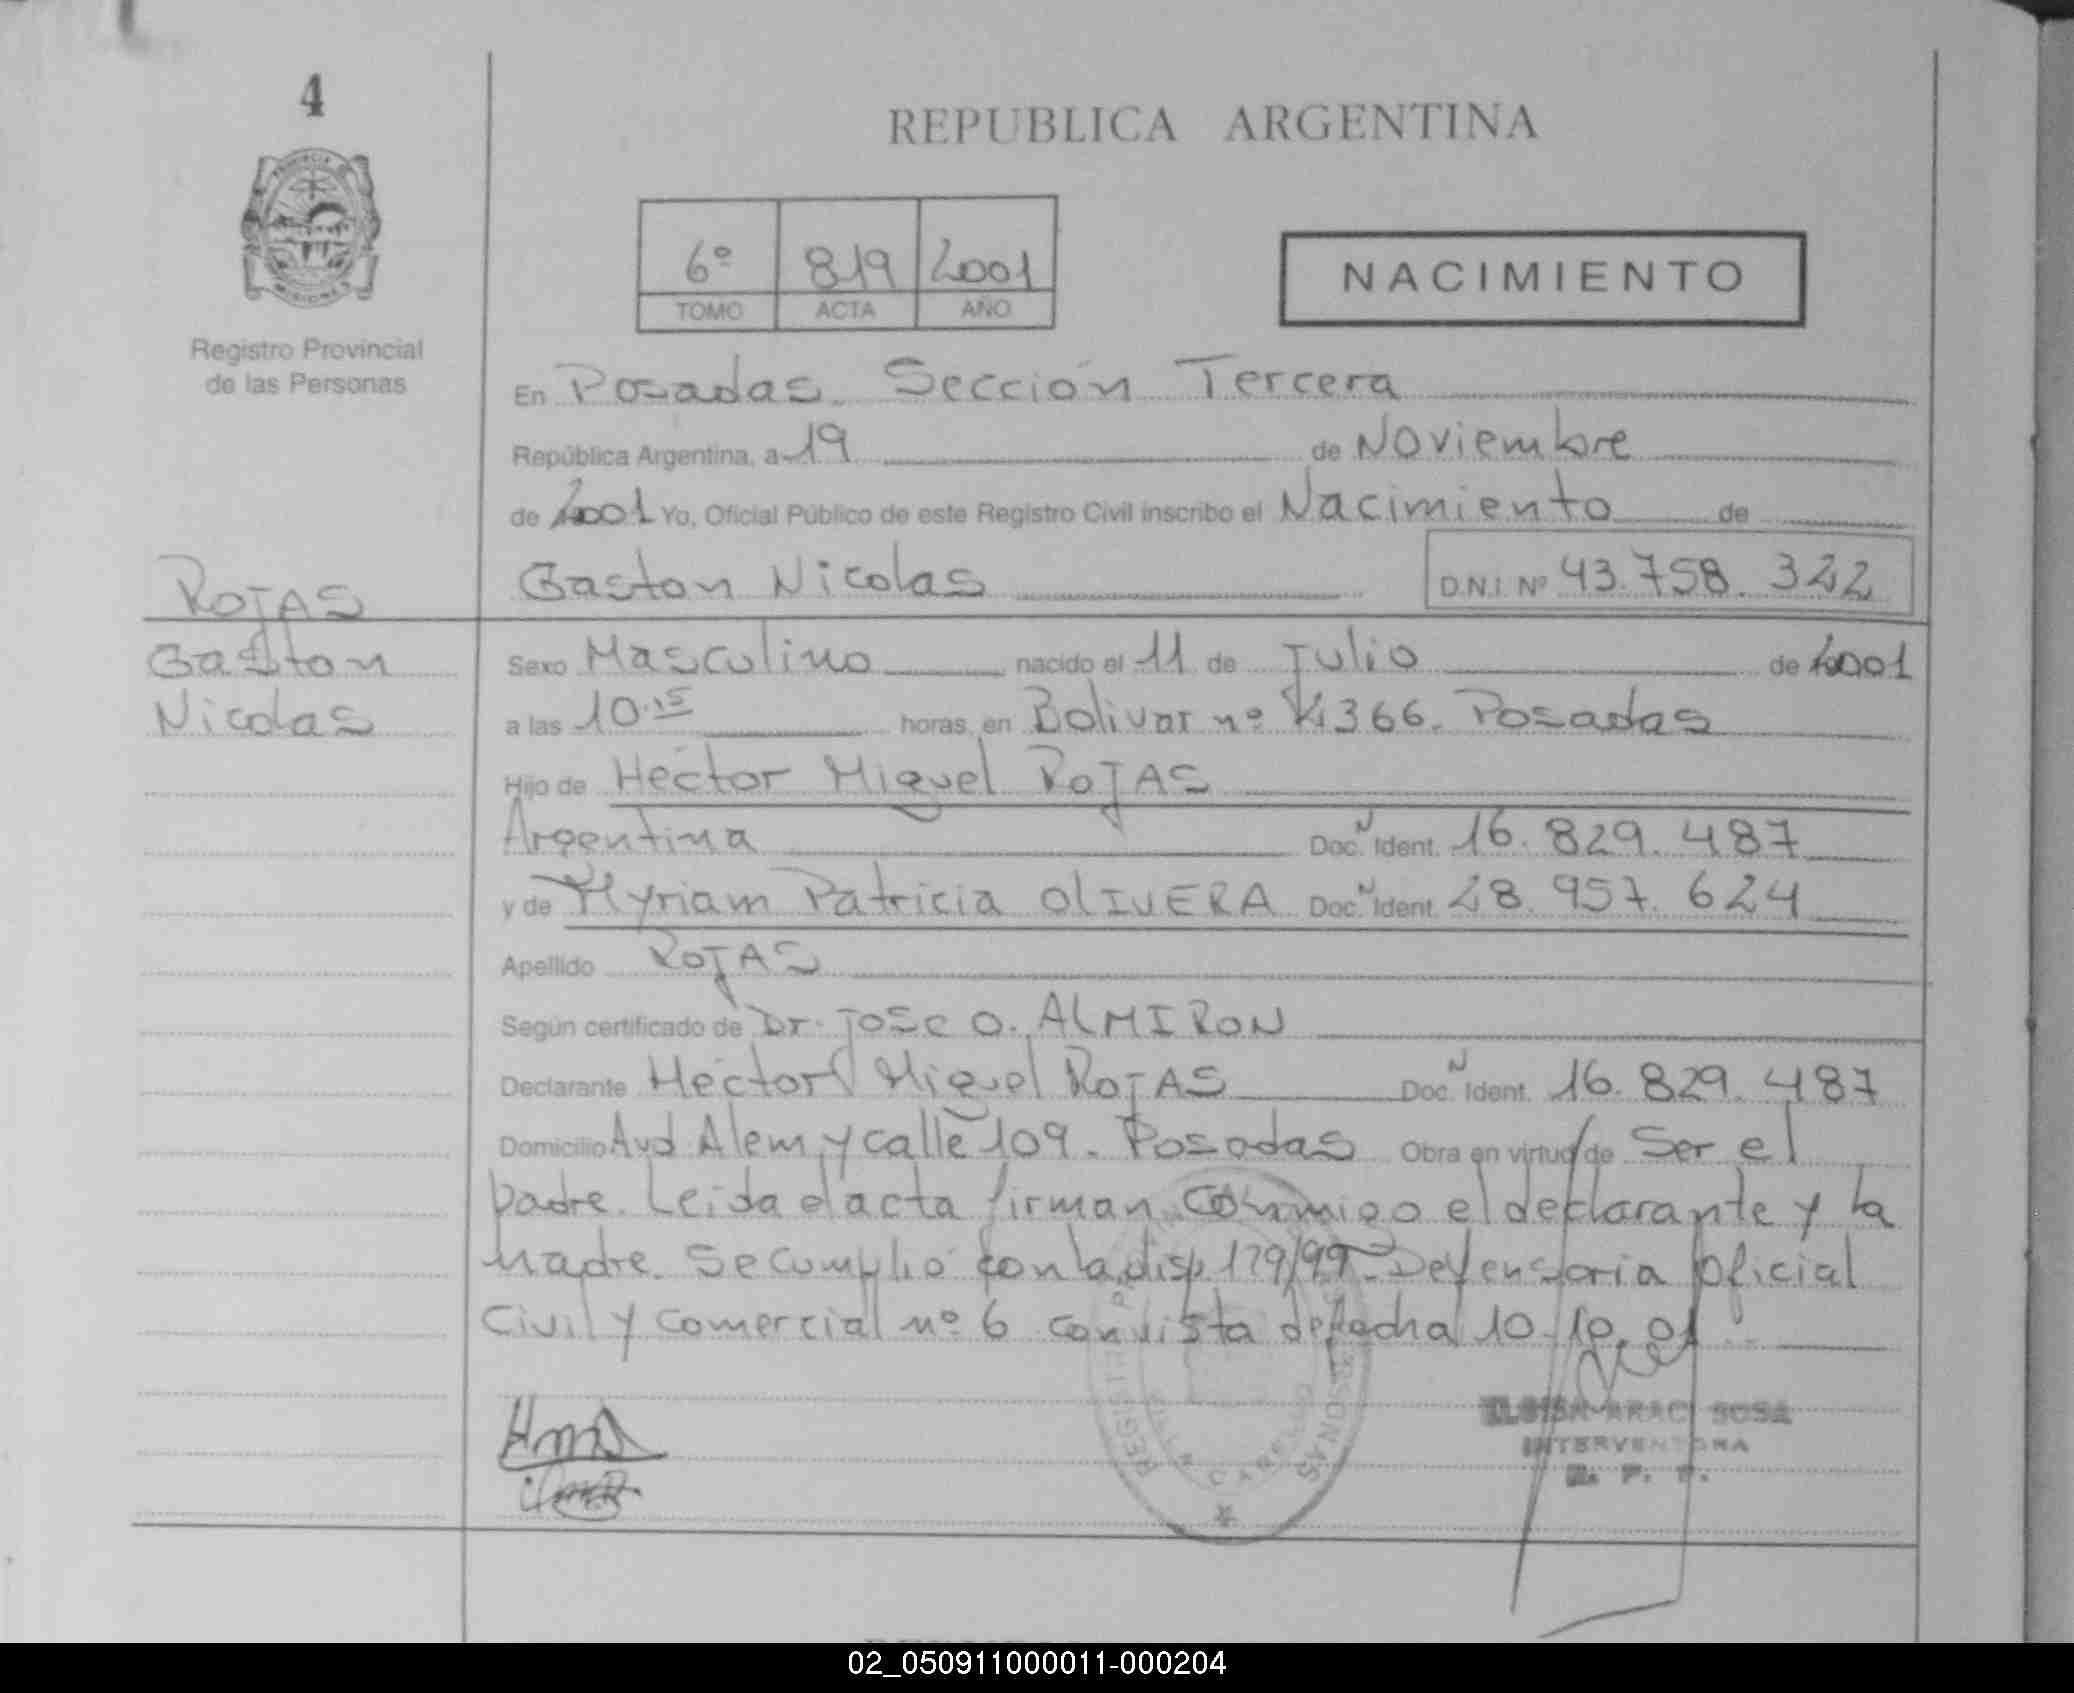 4
REPUBLICA ARGENTINA
PROVINCIA DE
MISIONES
6º 819 2001
TOMO ACTA AÑO
NACIMIENTO
Registro Provincial
de las Personas
En Posadas. Sección Tercera
República Argentina, a 19 de Noviembre
de 2001 Yo, Oficial Público de este Registro Civil inscribo el Nacimiento de
ROJAS
Gaston Nicolas D.N.I. Nº 43.758.322
Gaston
Sexo Masculino nacido el 11 de Julio de 2001
Nicolas
a las 10.15 horas, en Bolivar nº 1366. Posadas
Hijo de Hector Miguel ROJAS
Argentina Doc. N Ident. 16.829.487
y de Myriam Patricia OlIVERA Doc. N Ident. 28.957.624
Apellido ROJAS
Según certificado de Dr. Jose O. ALMIRON
Declarante Hector Miguel ROJAS Doc. N Ident. 16.829.487
Domicilio Avd Alem y calle 109. Posadas Obra en virtud de Ser el
padre. Leida el acta firman conmigo el declarante y la
madre. Se cumplio con la disp 179/99. Defensoria Oficial
Civil y Comercial nº 6 con vista de fecha 10.10.01
ARACI SOSA
INTERVENTORA
R. P. P.
02_050911000011-000204